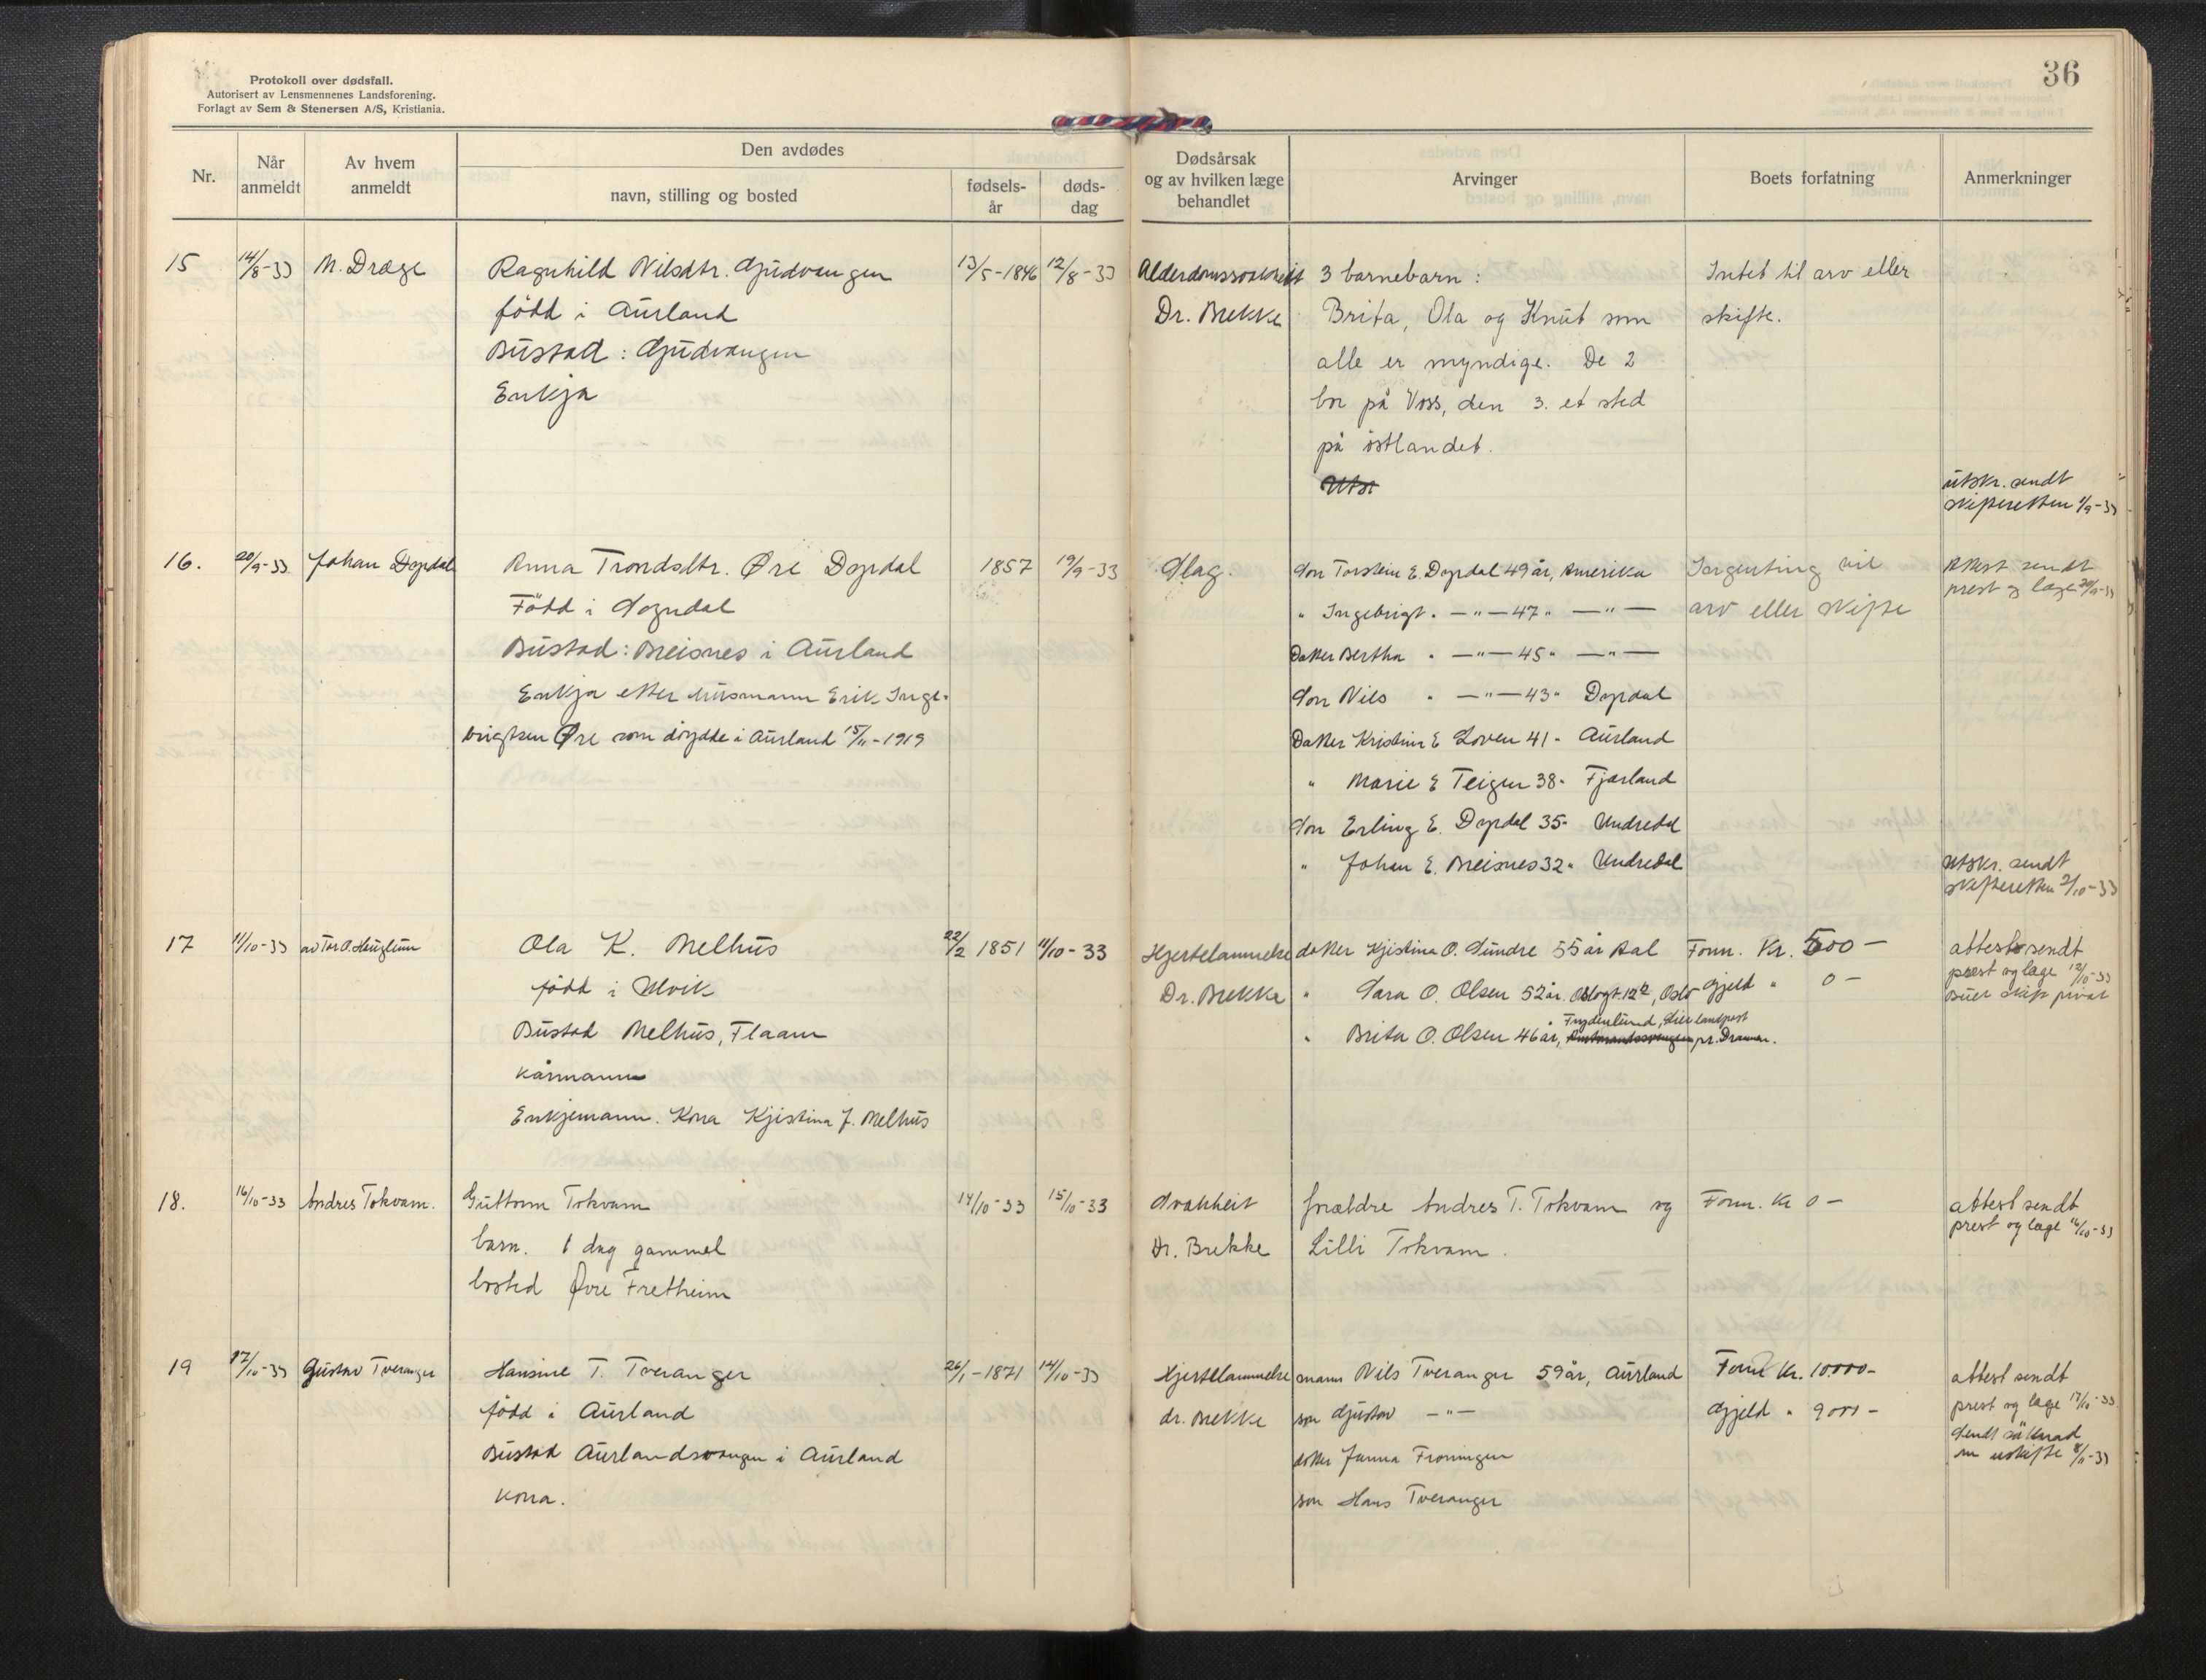 Protokoll over dødsfall.
Autorisert av Lensmennenes Landsforening.
Forlagt av Sem & Stenersen A/S, Kristiania.
36
Nr.
Når anmeldt
Av hvem anmeldt
Den avdødes
navn, stilling og bosted
fødsels-år
døds-dag
Dødsårsak og av hvilken læge behandlet
Arvinger
Boets forfatning
Anmerkninger
15
14/8-33
M. Dræge
Ragnhild Nilsdtr. Gjudvangen
född i Aurland
Bustad: Gjudvangen
Enkja
13/5-1846
12/8-33
Alderdomssvakheit
Dr. Brekke
3 barnebarn:
Brita, Ola og Knut som
alle er myndige. De 2
bor på Voss, den 3. et sted
på östlandet.
Utsk
Intet til arv eller
skifte.
utskr. sendt
skifteretten 1/9-33
16.
20/9-33
Johan Dyrdal
Anna Trondsdtr. Øre Dyrdal
Född i Sogndal
Bustad: Breisnes i Aurland
Enkja etter husmann Erik Inge-
brigtsen Øre som döydde i Aurland 15/11-1919
1857
19/9-33
Slag
Son Torstein E. Dyrdal 49 år, Amerika
" Ingebrigt " —"— 47 " —"—
Datter Bertha " —"— 45 " —"—
Son Nils " —"— 43 " Dyrdal
Datter Kristine E Loven 41 - Aurland
" Marie E Teigen 38 - Fjærland
Son Erling E. Dyrdal 35 - Undredal
" Johan E. Breisnes 32 " Undredal
Ingenting vil
arv eller skifte
Attest sendt
prest og læge 20/9-33
Utskr. sendt
skifteretten 2/10-33
17
11/10-33
av Tor O. Heuglum
Ola K. Melhus
född i Ulvik
Bustad Melhus, Flaam
kårmann
Enkjemann. Kona Kjistina J. Melhus
22/2 1851
11/10-33
Hjertelammelse
Dr. Brekke
datter Kjistina O. Sundre 55 år Aal
" Sara O. Olsen 52 år. Oslogt. 12 b, Oslo
Frydenlund, Lier landpost
" Brita O. Olsen 46 år, pr. Drammen.
Form. Kr. 500 —
Gjeld " 0 —
attest sendt
prest og læge 12/10-33
Buet skift privat
18.
16/10-33
Andres Tokvam.
Guttorm Tokvam
barn. 1 dag gammel
bosted Øvre Fretheim
14/10-33
15/10-33
Svakheit
Dr. Brekke
foreldre Andres T. Tokvam og
Lilli Tokvam.
Form. Kr 0 —
attest sendt
prest og læge 16/10-33
19
17/10-33
Gustav Tveranger
Hansine T. Tveranger
född i Aurland
Bustad Aurlandsvangen i Aurland
kona.
26/1-1871
14/10-33
Hjertelammelse
dr. Brekke
mann Nils Tveranger 59 år, Aurland
son Gustav —"—
dotter Janna Fronningen
son Hans Tveranger
Form Kr. 10.000 -
Gjeld " 9000 -
attest sendt
prest og læge 17/10-33
Sendt söknad
um uskifte 8/11-33